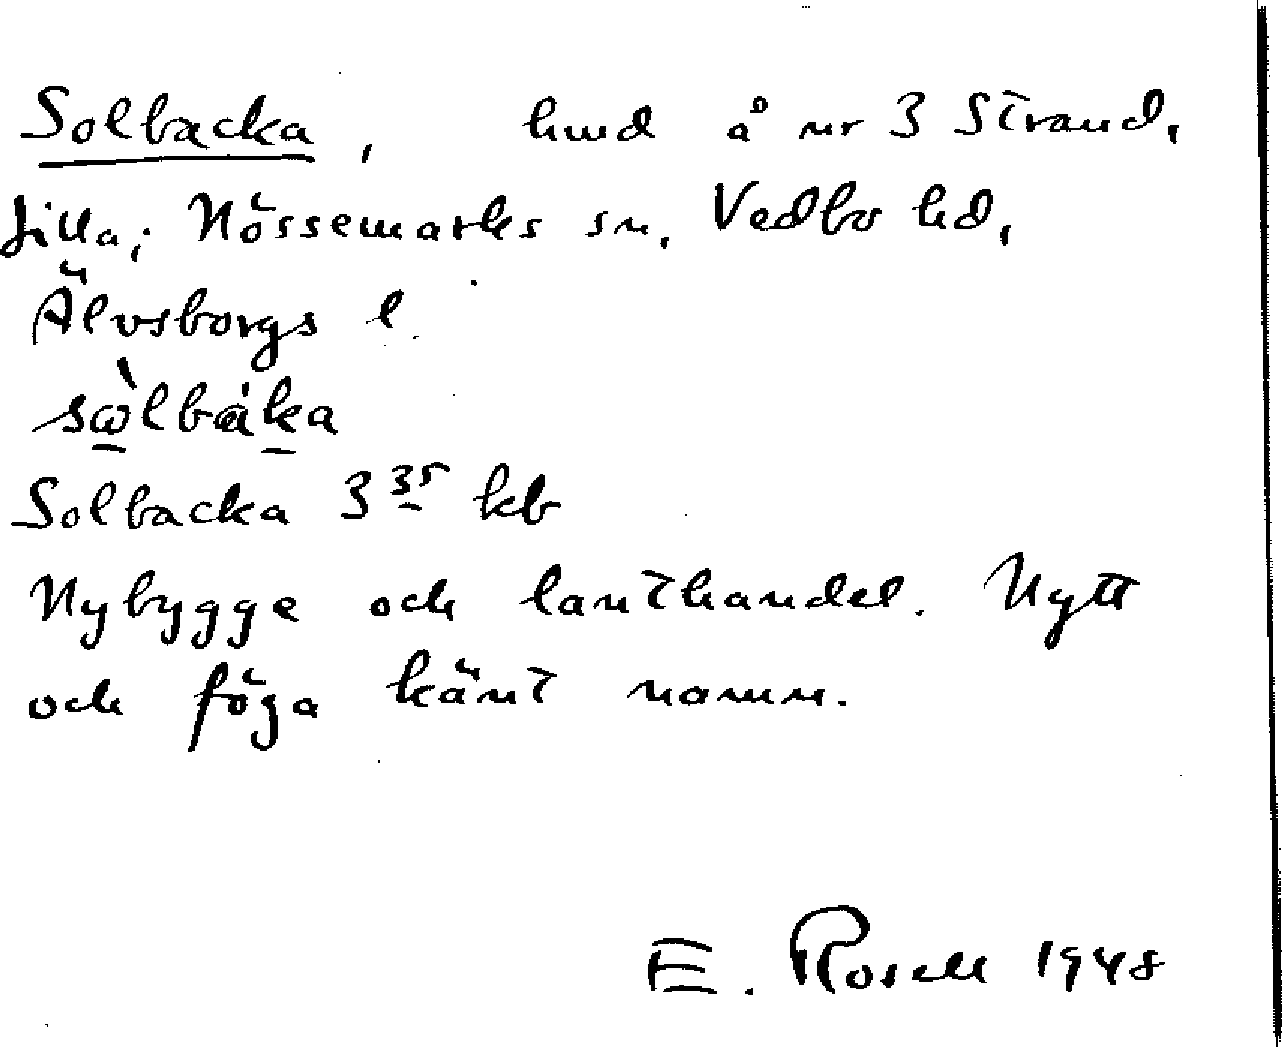 Solbacka, hmd å nr 3 Strand,
Lilla; Nössemarks sn, Vedbo hd,
Älvsborgs l.
sò̠lbàk̠a
Solbacka 3 35 kb
Nybygge och lanthandel. Nytt
och föga känt namn.
E. Rosell 1948